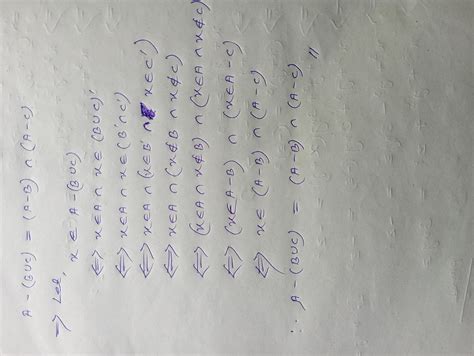 A - (B∪C) = (A-B) ∩ (A-C)
⇒ Let, x ∈ A - (B∪C)
⇔ x∈A ∩ x∈ (B∪C)'
⇔ x∈A ∩ x∈ (B'∩C')
⇔ x∈A ∩ (x∈B' ∩ x∈C')
⇔ x∈A ∩ (x∉B ∩ x∉C)
⇔ (x∈A ∩ x∉B) ∩ (x∈A ∩ x∉C)
⇔ (x∈A-B) ∩ (x∈A-C)
⇔ x∈ (A-B) ∩ (A-C)
∴ A - (B∪C) = (A-B) ∩ (A-C)